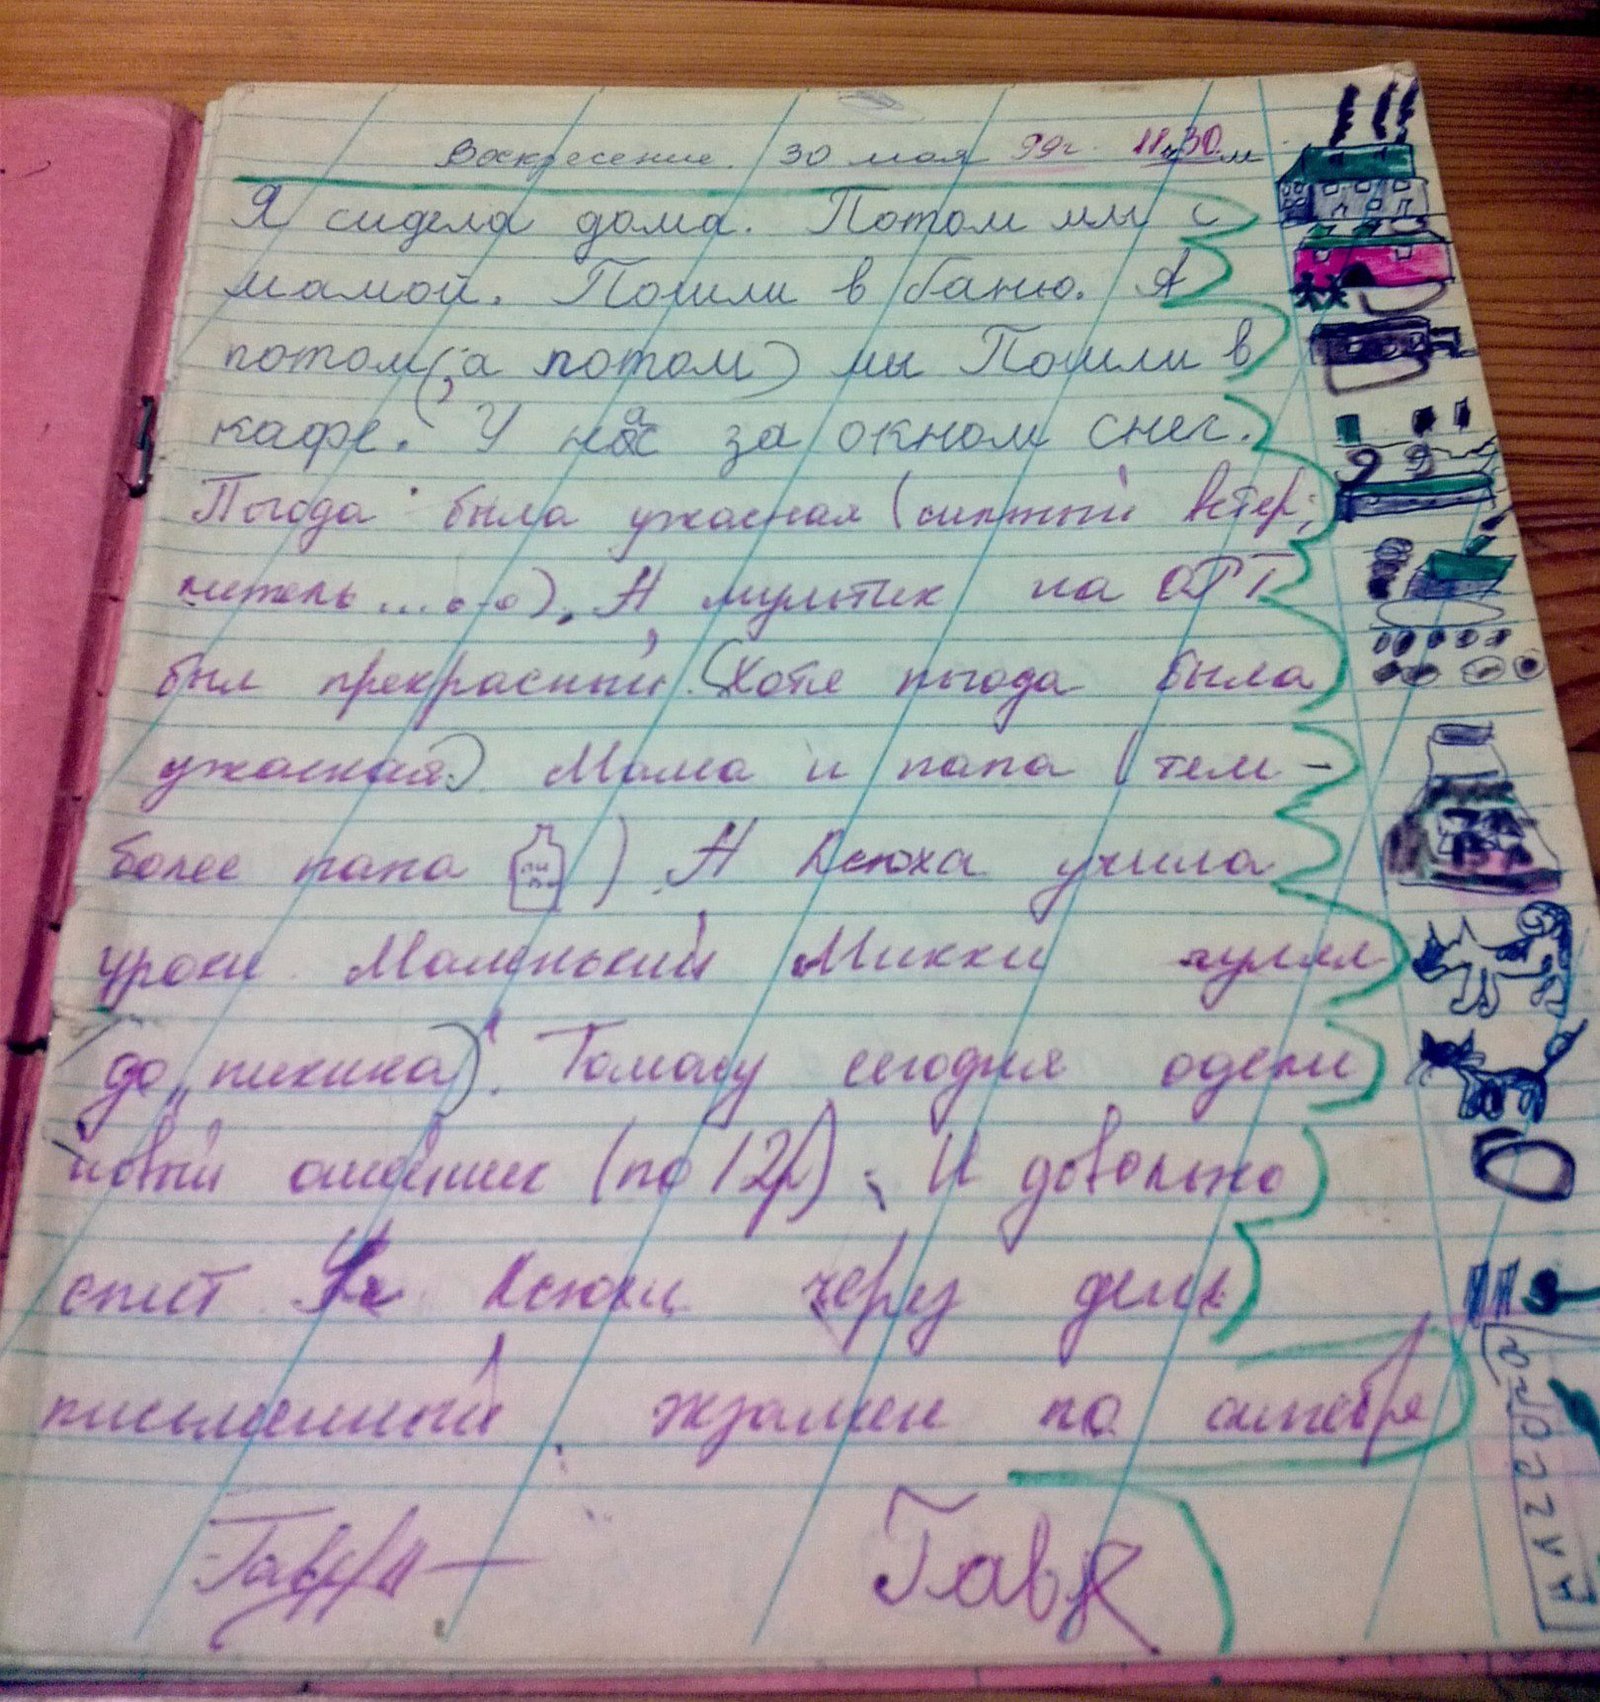 Воскресение. 30 мая 99г. 11ч30м
Я сидела дома. Потом мы с
мамой. Пошли в баню. А
потом(а потом) мы Пошли в
кафе. У нас за окном снег.
Погода была ужасная (сильный ветер,
метель...о-о). А мультик на ОРТ
был прекрасный. (Хотя погода была
ужасная.) Мама и папа (тем-
более папа ) А Ксюха учила
уроки. Маленький Микки гулял
(до "пикика). Томасу сегодня одели
новый ошейник (по 12р). И довольно
спит У Ксюхи через день
письменный экзамен по алгебре